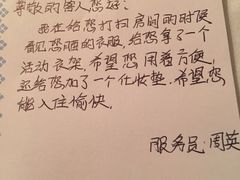 尊敬的客人您好:
我在给您打扫房间的时候
看见您晒的衣服,给您拿了一个
活动衣架,希望您用着方便,
还给您加了一个化妆垫.希望您
能入住愉快.
服务员:周英